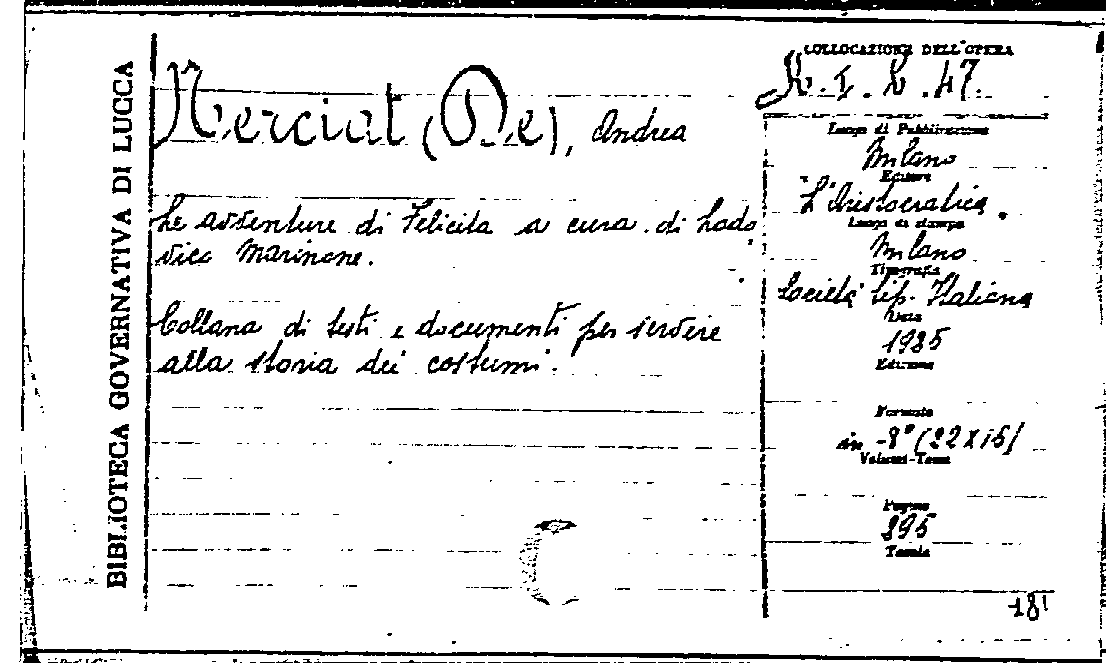 BIBLIOTECA GOVERNATIVA DI LUCCA
Nerciat (De), Andrea
Le avventure di Felicita a cura di Lodo
vico Marinone.
Collana di testi e documenti per servire
alla storia dei costumi.
COLLOCAZIONE DELL'OPERA
47.
Luogo di Pubblicazione
Milano
Editore
L'Aristocratica.
Luogo di stampa
Milano
Tipografia
Società tip. Italiana
Data
1925
Edizione
Formato
in -8° (22X15)
Volumi-Tomi
Pagine
295
Tavole
181